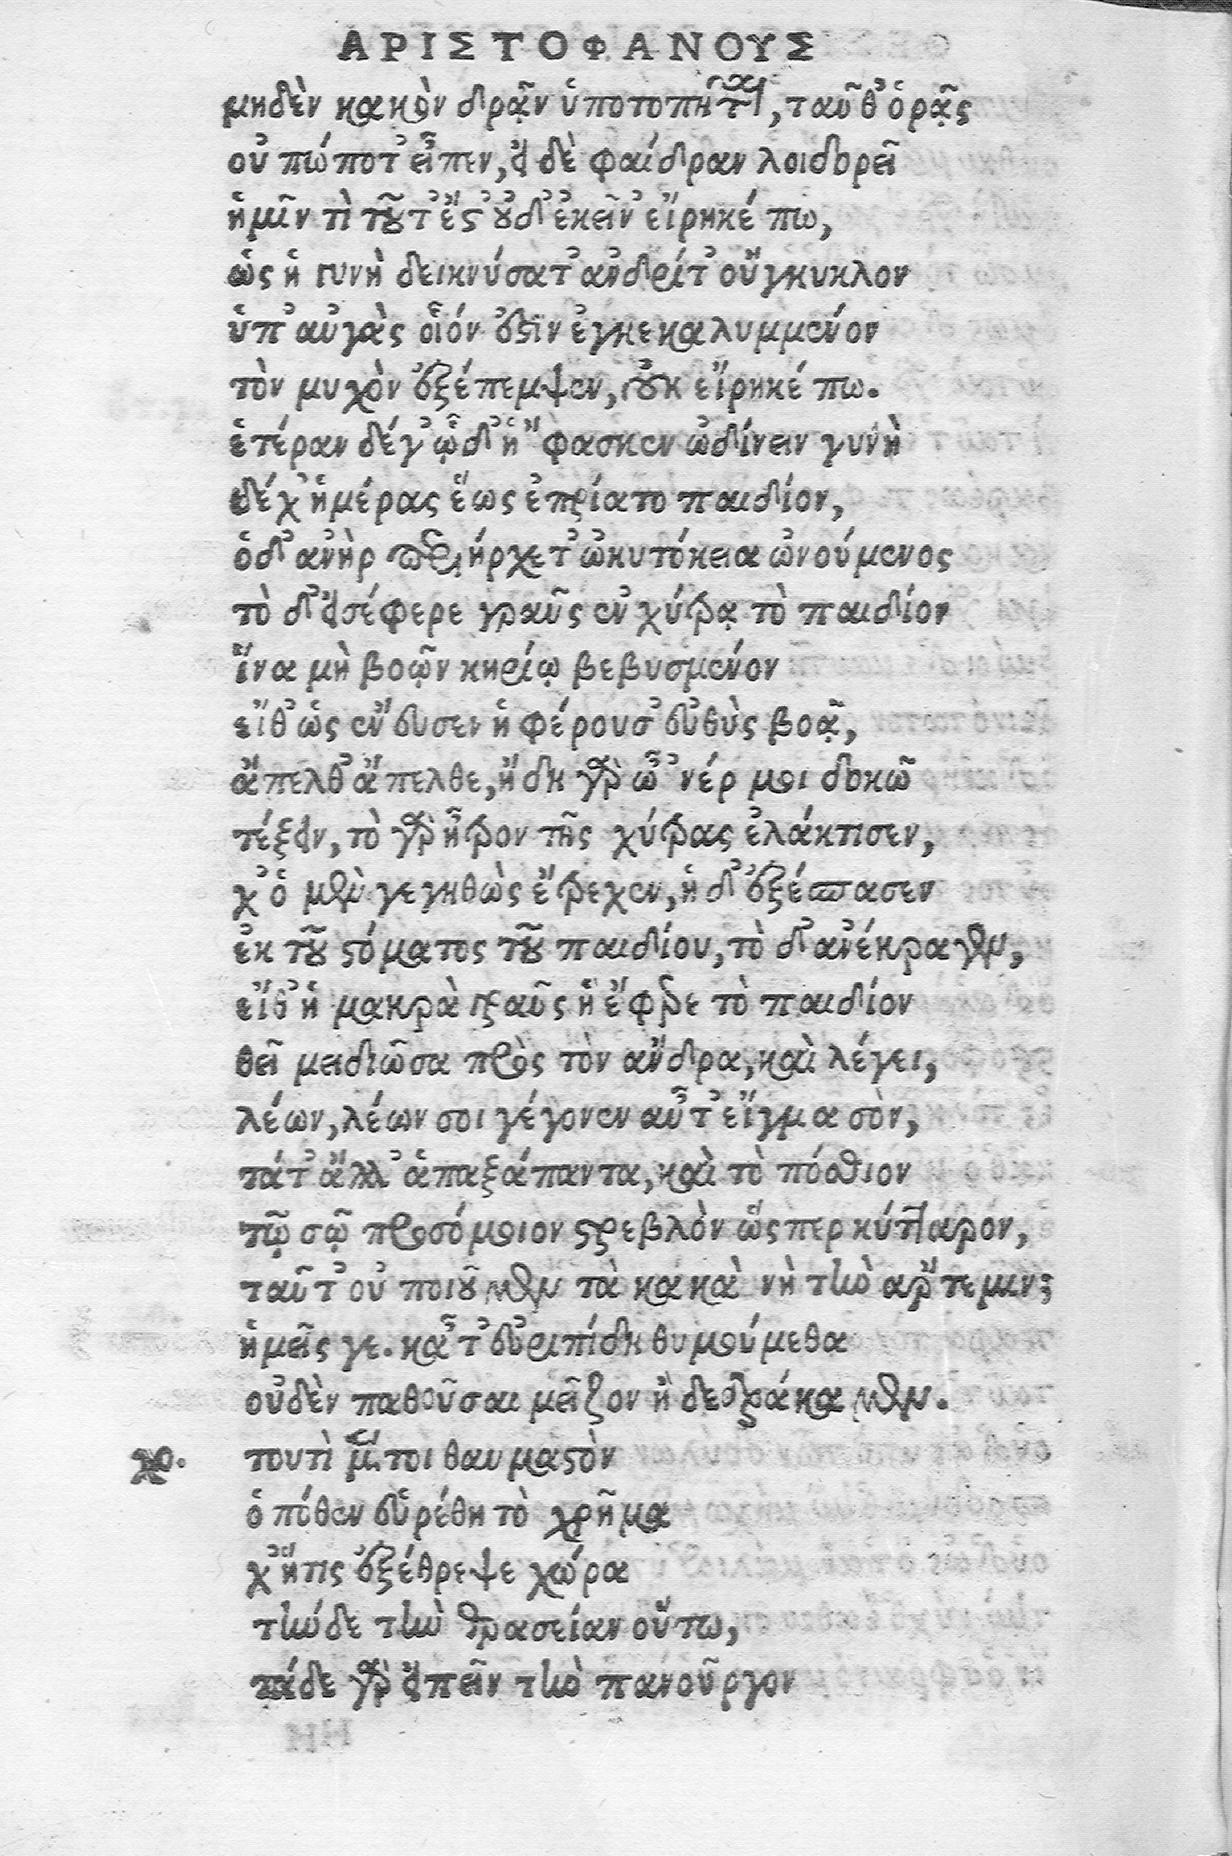 ΑΡΙΣΤΟΦΑΝΟΥΣ
μηδὲν κακὸν δρᾷν ὑποτοπῆται, ταῦθ᾽ ὁρᾷς
οὐ πώποτ᾽ εἶπεν, εἰ δὲ φαίδραν λοιδορεῖ
ἡμῖν τὶ τοῦτ᾽ ἔς᾽ οὐδ᾽ ἐκεῖν᾽ εἴρηκέ πω,
ὡς ἡ γυνὴ δεικνύσατ᾽ ἀνδρίτ᾽ οὔγκυκλον
ὑπ᾽ αὐγὰς οἷόν ἐςὶν ἐγκεκαλυμμένον
τὸν μυχὸν ἐξέπεμψεν, οὐκ εἴρηκέ πω.
ἑτέραν δέγ᾽ ᾧδ᾽ ἣ ἔφασκεν ὠδίνειν γυνὴ
δέχ᾽ ἡμέρας ἕως ἐπρίατο παιδίον,
ὁδ᾽ ἀνὴρ περιήρχετ᾽ ὠκυτόκεια ὠνούμενος
τὸ δ᾽ εἰσέφερε γραῦς ἐν χύτρᾳ τὸ παιδίον
ἵνα μὴ βοῷν κηρίῳ βεβυσμένον
εἴθ᾽ ὡς ἔνευσεν ἡ φέρουσ᾽ εὐθὺς βοᾷ,
ἄπελθ᾽ ἄπελθε, ἤδη γὰρ ὦ᾽νέρ μοι δοκῶ
τέξειν, τὸ γὰρ ἦτρον τῆς χύτρας ἐλάκτισεν,
χ᾽ ὁ μὲν γεγηθὼς ἔτρεχεν, ἡ δ᾽ ἐξέσπασεν
ἐκ τοῦ ςόματος τοῦ παιδίου, τὸ δ᾽ ἀνέκραγεν,
εἴθ᾽ ἡ μακρὰ γραῦς ἣ ἔφερε τὸ παιδίον
θεῖ μειδιῶσα πρὸς τὸν ἄνδρα, καὶ λέγει,
λέων, λέων σοι γέγονεν αὖτ᾽ εἴγμα σὸν,
τάτ᾽ ἄλλ᾽ ἁπαξάπαντα, καὶ τὸ πόσθιον
τῷ σῷ προσόμοιον ςρεβλὸν ὥςπερ κύτταρον,
ταῦτ᾽ οὐ ποιοῦμεν τὰ κακὰ νὴ τὴν ἄρτεμιν;
ἡμεῖς γε. κᾆτ᾽ εὐριπίδη θυμούμεθα
οὐδὲν παθοῦσαι μεῖζον ἢ δεδράκαμεν.
χο. τουτὶ μέντοι θαυμαςὸν
ὁπόθεν εὑρέθη τὸ χρῆμα
χ᾽ ἥτις ἐξέθρεψε χώρα
τήνδε τὴν θρασεῖαν οὕτω,
τάδε γὰρ εἰπεῖν τὴν πανοῦργον